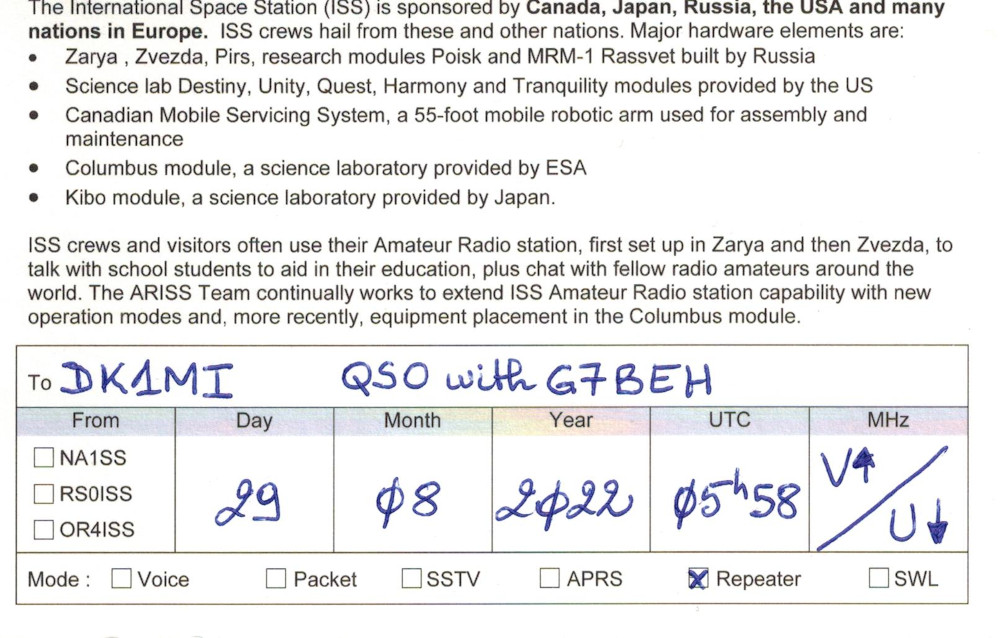 The International Space Station (ISS) is sponsored by Canada, Japan, Russia, the USA and many
nations in Europe. ISS crews hail from these and other nations. Major hardware elements are:
• Zarya , Zvezda, Pirs, research modules Poisk and MRM-1 Rassvet built by Russia
• Science lab Destiny, Unity, Quest, Harmony and Tranquility modules provided by the US
• Canadian Mobile Servicing System, a 55-foot mobile robotic arm used for assembly and
maintenance
• Columbus module, a science laboratory provided by ESA
• Kibo module, a science laboratory provided by Japan.
ISS crews and visitors often use their Amateur Radio station, first set up in Zarya and then Zvezda, to
talk with school students to aid in their education, plus chat with fellow radio amateurs around the
world. The ARISS Team continually works to extend ISS Amateur Radio station capability with new
operation modes and, more recently, equipment placement in the Columbus module.
To DK1MI QSO with G7BEH
From Day Month Year UTC MHz
☐ NA1SS
☐ RS0ISS
☐ OR4ISS
29 Ø8 2Ø22 Ø5h58 V↑ / U↓
Mode : ☐ Voice ☐ Packet ☐ SSTV ☐ APRS ☒ Repeater ☐ SWL